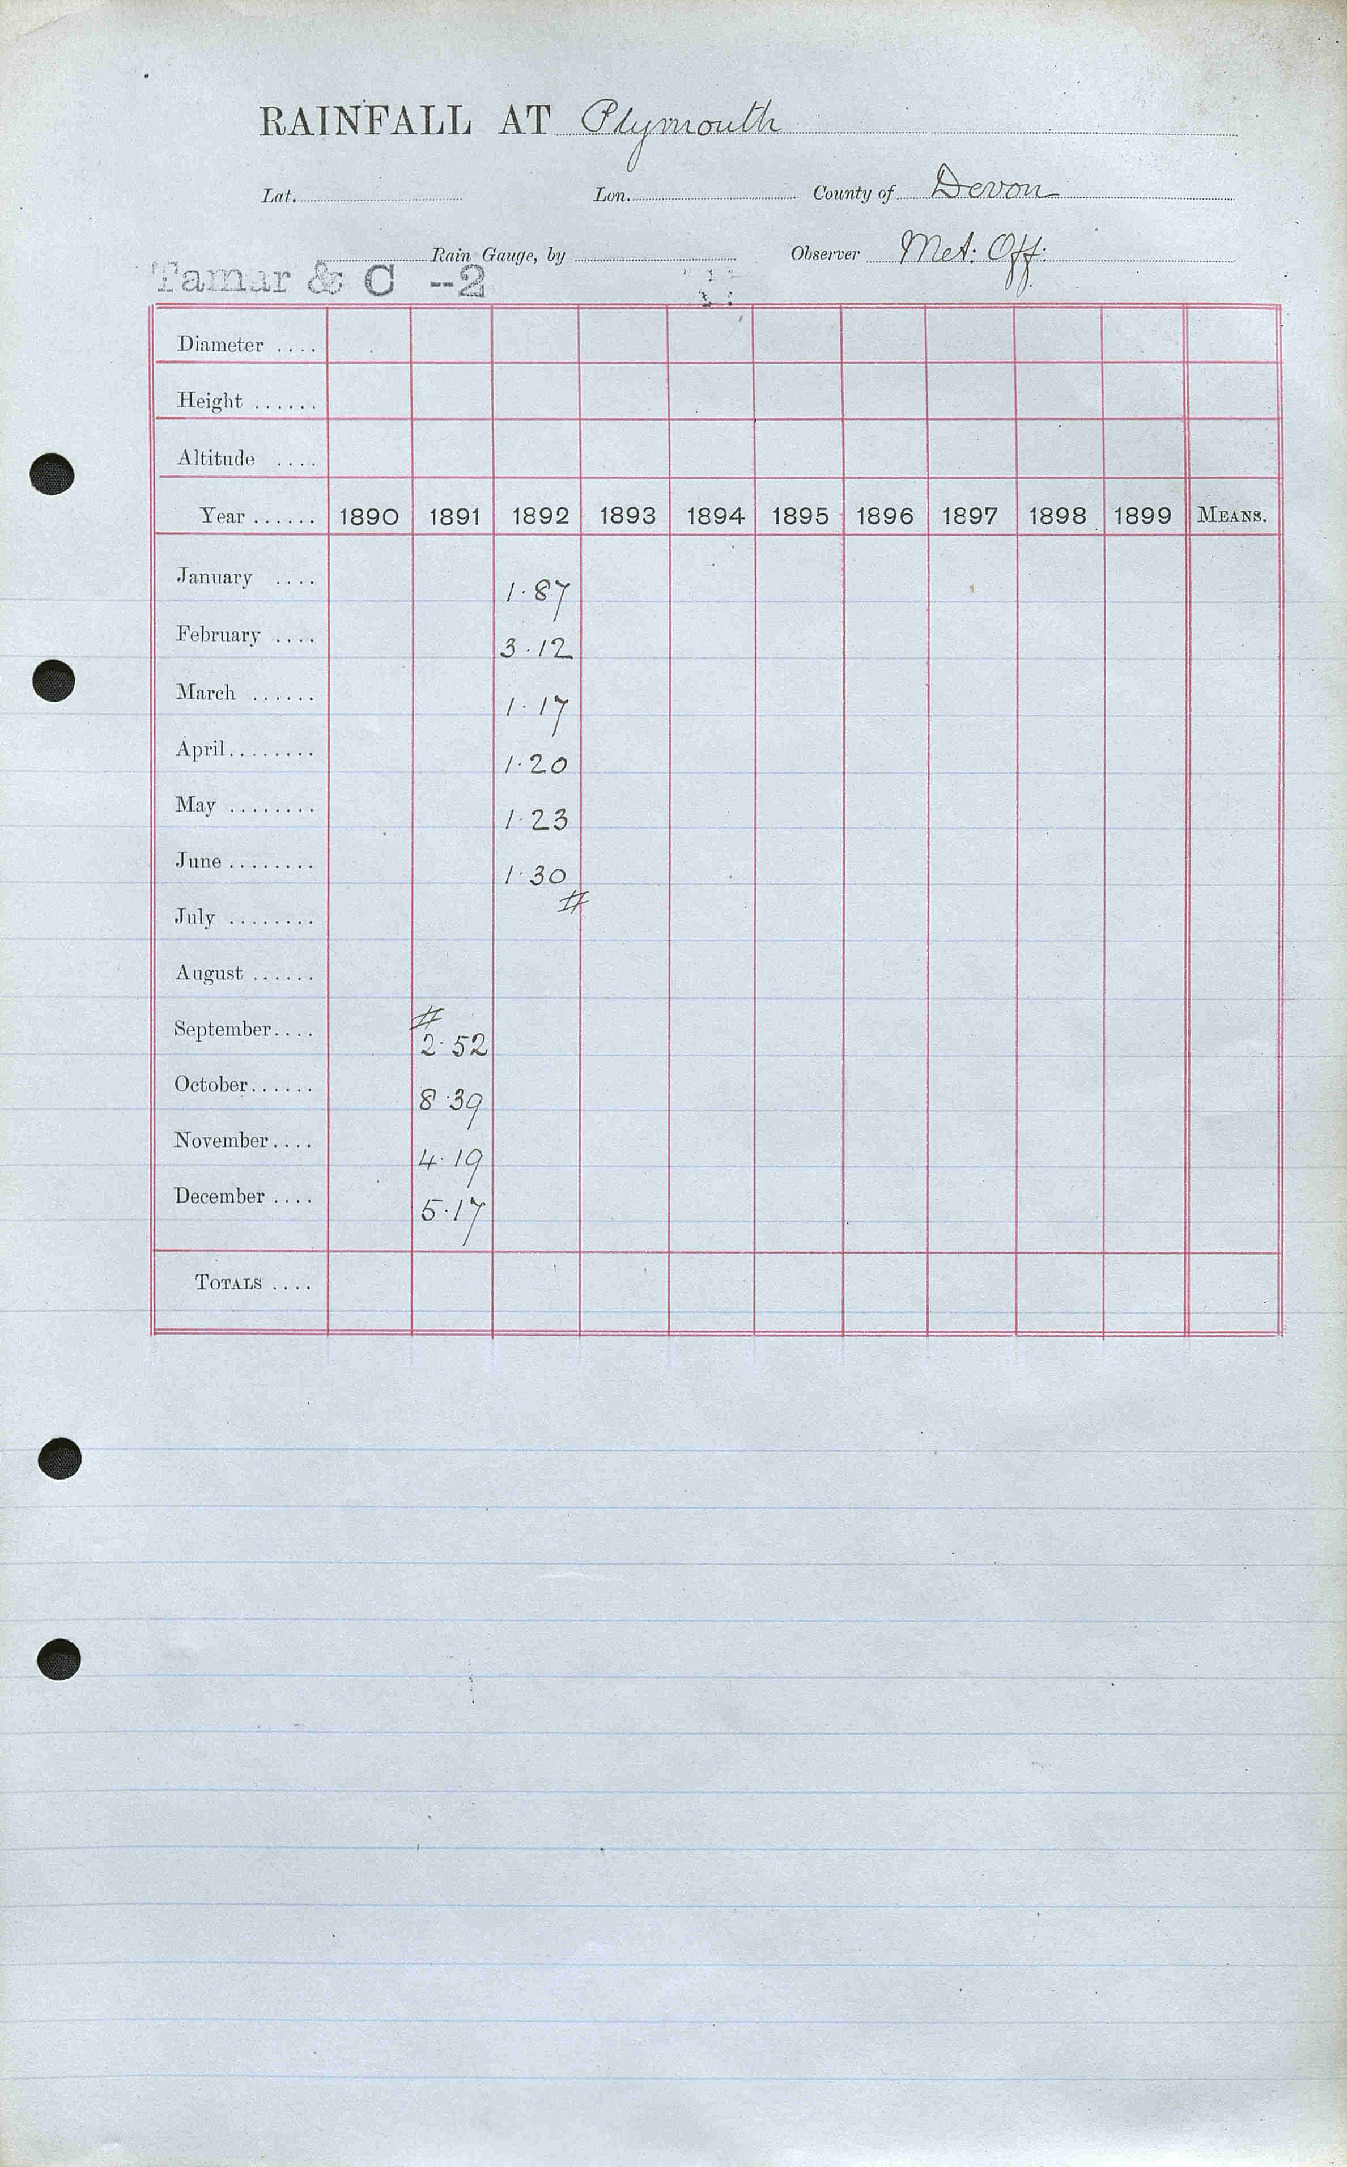 RAINFALL AT Plymouth
Lat. Lon. County of Devon
Rain Gauge, by Observer Met: Off:
Tamar & C --2
Diameter ....
Height ......
Altitude ....
Year ...... 1890 1891 1892 1893 1894 1895 1896 1897 1898 1899 MEANS.
January .... 1.87
February .... 3.12
March ...... 1.17
April........ 1.20
May ........ 1.23
June ........ 1.30
July ........ #
August ......
September.... # 2.52
October...... 8.39
November.... 4.19
December .... 5.17
TOTALS ....